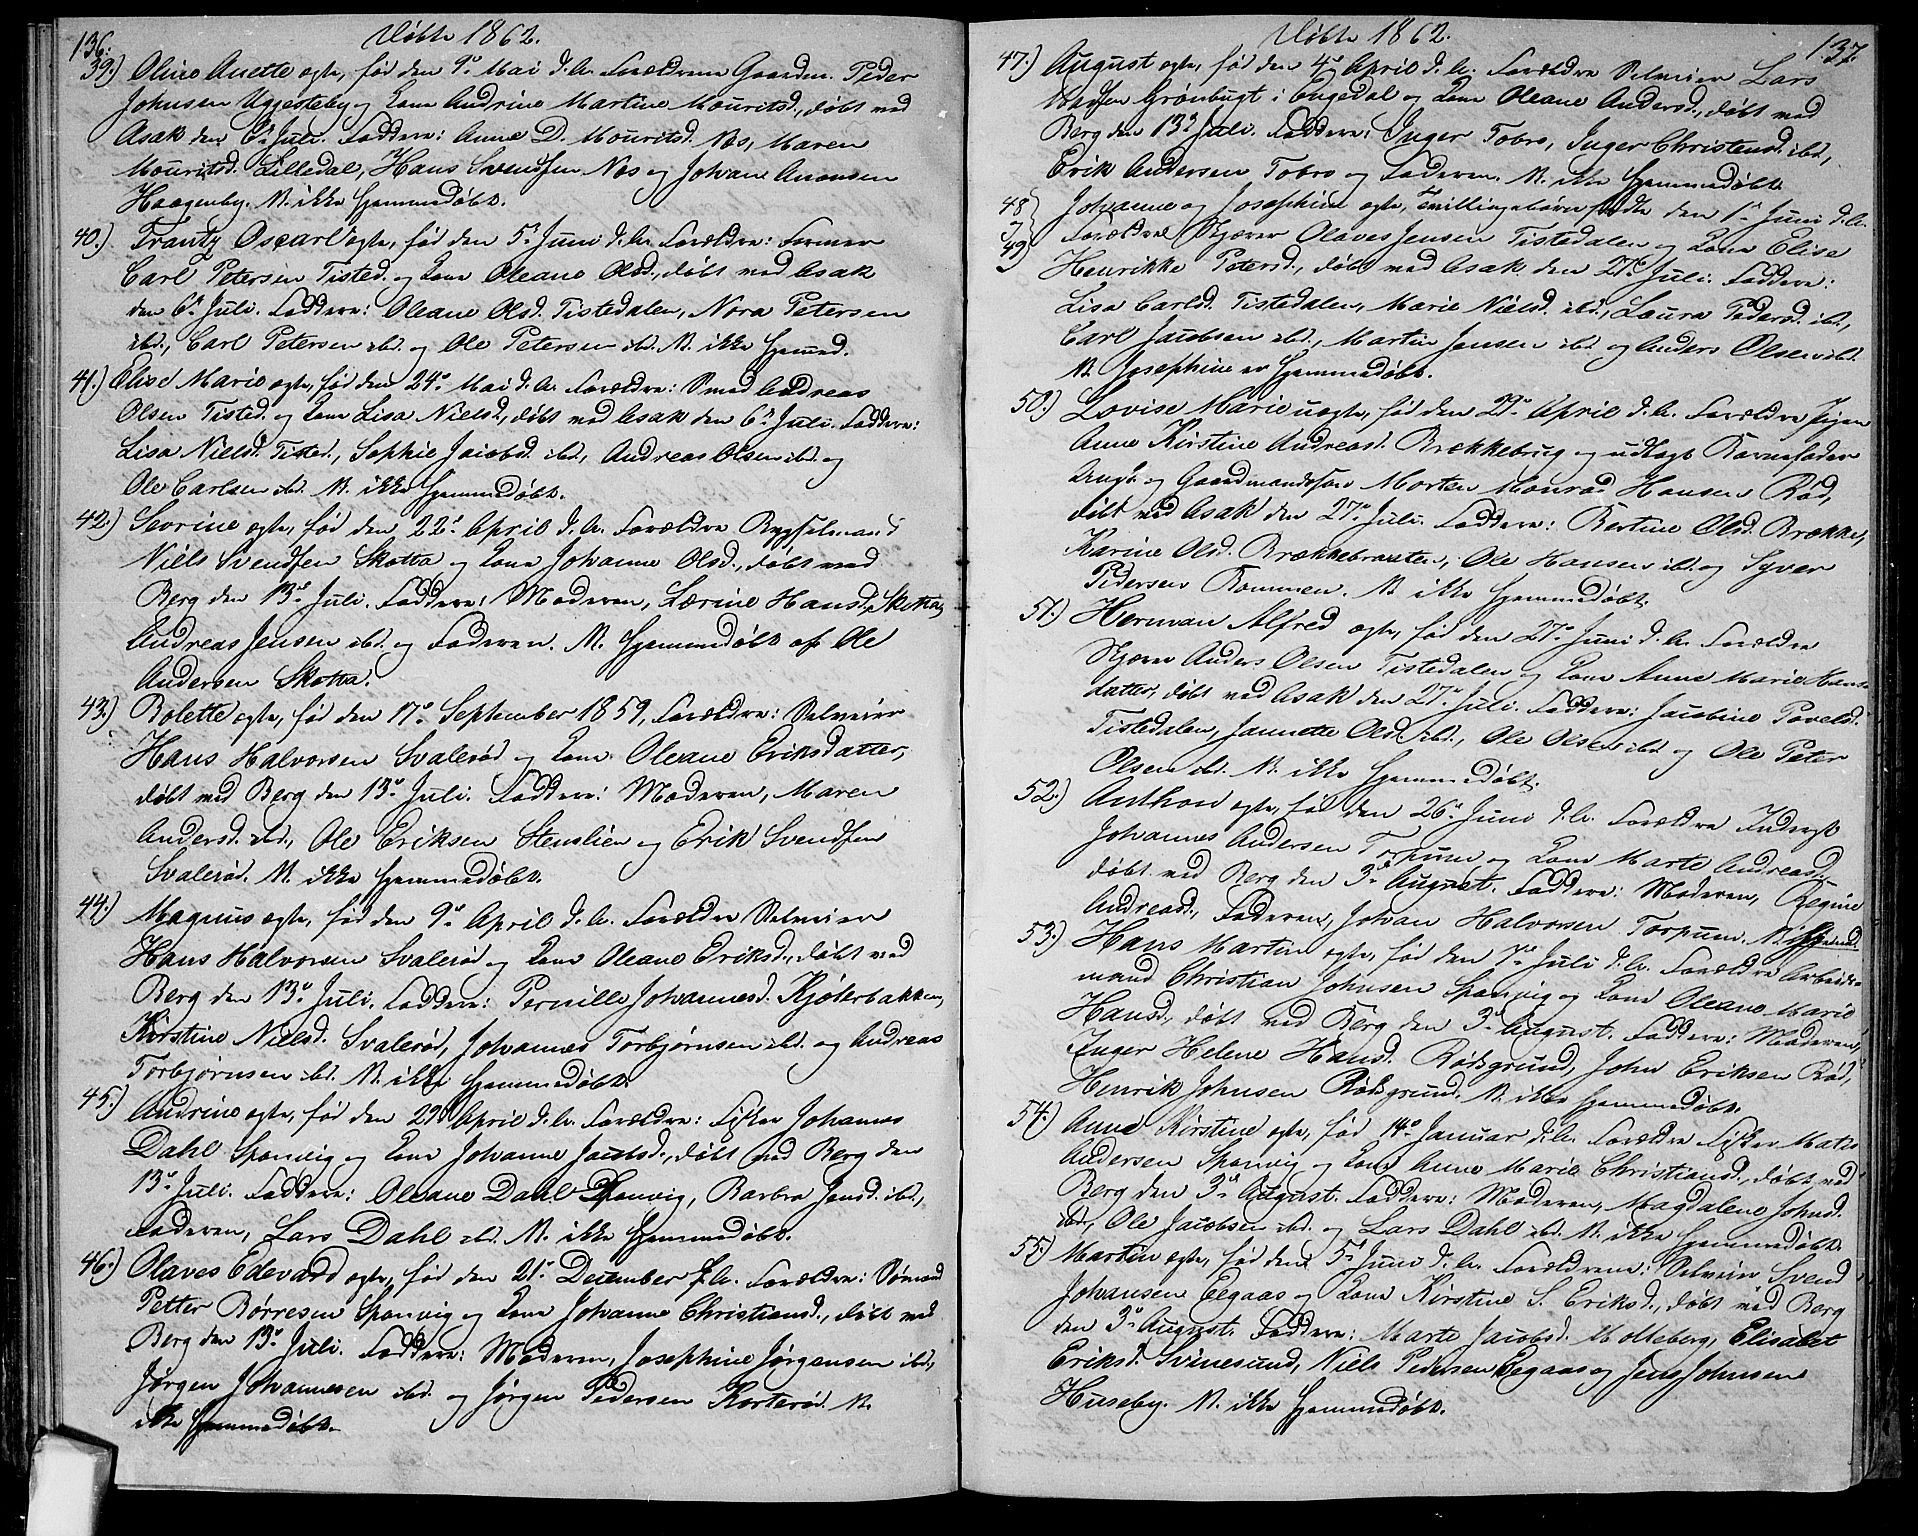 136.
Døbte 1862.
39.) Oline Anette ægte, født den 9de Mai d.A. Forældrene Gaardm. Peder
Johnsen Uggesteby og Kone Andrine Martine Mouritsd., døbt ved
Asak den 6te Juli. Faddere: Anne D. Mouritsd. Næs, Maren
Mouritsd. Lilledal, Hans Svendsen Næs og Johan Anonsen
Haagenby. N. ikke hjemmedøbt.
40.) Frantz Oscar ægte, fød den 5te Juni d.A. Forældre: Former
Carl Petersen Tisted. og Kone Oleane Olsd., døbt ved Asak
den 6te Juli. Faddere: Oleane Olsd. Tistedalen, Nora Petersen
ibd., Carl Petersen ibd. og Ole Petersen ibd. N. ikke hjemmd.
41.) Elise Marie ægte, fød den 24de Mai d.A. Forældre: Smed Andreas
Olsen Tisted. og Kone Lisa Nielsd., døbt ved Asak den 6te Juli. Faddere:
Lisa Nielsd. Tisted., Sophie Jacobsd. ibd., Andreas Olsen ibd. og
Ole Carlsen ibd. N. ikke hjemmedøbt.
42.) Sevrine ægte, fød den 22de April d.A. Forældre Bygselmand
Niels Svendsen Skotta og Kone Johanne Olsd., døbt ved
Berg den 13de Juli. Faddere: Moderen, Lærine Hansd. Skotta,
Andreas Jensen ibd. og Faderen. N. hjemmedøbt af Ole
Andersen Skotta.
43.) Bolette ægte, fød den 17de September 1859, Forældre: Selveier
Hans Halvorsen Svalerød og Kone Oleane Eriksdatter,
døbt ved Berg den 13de Juli. Faddere: Moderen, Maren
Andersd. ibd., Ole Eriksen Stenslien og Erik Svendsen
Svalerød. N. ikke hjemmedøbt.
44.) Magnus ægte, fød den 9de April d.A. Forældre Selveier
Hans Halvorsen Svalerød og Kone Oleane Eriksd., døbt ved
Berg den 13de Juli. Faddere: Pernille Johannesd. Kjølerbakken,
Kirstine Nielsd. Svalerød, Johannes Torbjørnsen ibd. og Andreas
Torbjørnsen ibd. N. ikke hjemmedøbt.
45.) Andrine ægte, fød den 29de April d.A. Forældre: Fisker Johannes
Dahl Sponvig og Kone Johanne Jacobsd., døbt ved Berg den
13de Juli. Faddere: Oleane Dahl Sponvig, Barbra Jensd. ibd.,
Faderen, Lars Dahl ibd. N. ikke hjemmedøbt.
46.) Olaves Edevard ægte, fød den 21de December f.A. Forældre: Sømand
Petter Børresen Sponvig og Kone Johanne Christiansd., døbt ved
Berg den 13de Juli. Faddere: Moderen, Josephine Jørgensen ibd.,
Jørgen Johannesen ibd. og Jørgen Pedersen Korterød. N.
ikke hjemmedøbt.
Døbte 1862.
137.
47.) August ægte, fød den 4de April d.A. Forældre Selveier Lars
Grønbugt i Engedal og Kone Oleane Andersd., døbt ved
Berg den 13de Juli. Faddere: Inger Tobro, Inger Christensd. ibd.,
Erik Andersen Tobro og Faderen. N. ikke hjemmedøbt.
48) & 49) Johanne og Josephine ægte, Tvillingebørn fødte den 1ste Juni d.A.
Forældre Skjærer Olaves Jensen Tistedalen og Kone Elise
Henrikke Petersd., døbt ved Asak den 27de Juli. Faddere:
Lisa Carlsd. Tistedalen, Marie Nielsd. ibd., Laura Pedersd. ibd.,
Carl Jacobsen ibd., Martin Jensen ibd. og Anders Olsen ibd.
N. Josephine er hjemmedøbt.
50.) Lovise Marie uægte, fød den 29de April d.A. Forældre Pigen
Anne Kirstine Andreasd. Brækkebrug og udlagt Barnefader
Ungk. og Gaardmandssøn Morten Monrad Hansen Rød,
døbt ved Asak den 27de Juli. Faddere: Bertine Olsd. Brække,
Karine Olsd. Brækkebraaten, Ole Hansen ibd. og Syver
Pedersen Kommen. N. ikke hjemmedøbt.
51.) Herman Alfred ægte, fød den 27de Juni d.A. Forældre
Skjærer Anders Olsen Tistedalen og Kone Anne Marie Hans-
datter, døbt ved Asak den 27de Juli. Faddere: Jacobine Povelsd.
Tistedalen, Jannette Olsd. ibd., Ole Olsen ibd. og Ole Peter
Olsen ibd. N. ikke hjemmedøbt.
52.) Anthon ægte, fød den 26de Juni d.A. Forældre Inderst
Johannes Andersen Torpum og Kone Marte Andreasd.,
døbt ved Berg den 3de August. Faddere: Moderen, Regine
Andreasd., Faderen, Johan Halvorsen Torpum. N. i. hjemmd.
53.) Hans Martin ægte, fød den 1ste Juli d.A. Forældre Arbeids-
mand Christian Johnsen Sponvig og Kone Oleane Marie
Hansd., døbt ved Berg den 3de August. Faddere: Moderen,
Inger Helene Hansd. Rødsgrund, John Eriksen Rød,
Henrik Johnsen Rødsgrund. N. ikke hjemmedøbt.
54.) Anne Kirstine ægte, fød 14de Januar d.A. Forældre Fisker Mats
Andersen Sponvig og Kone Anne Marie Christiansd., døbt ved
Berg den 3de August. Faddere: Moderen, Magdalene Johnsd.
ibd., Ole Jacobsen ibd. og Lars Dahl ibd. N. ikke hjemmedøbt.
55.) Martin ægte, fød den 5te Juni d.A. Forældrene: Selveier Svend
Johansen Eegaas og Kone Kirstine S. Eriksd., døbt ved Berg
den 3de August. Faddere: Marte Jacobsd. Molteberg, Elisabet
Eriksd. Svinesund, Niels Pedersen Eegaas og Jens Johnsen
Huseby. N. ikke hjemmedøbt.